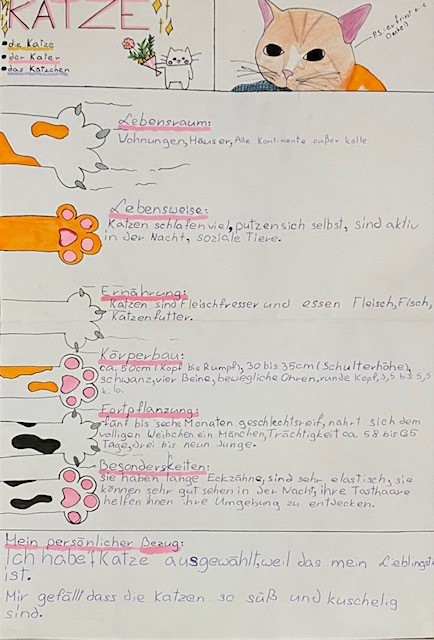 KATZE
• die Katze
• der Kater
• das Kätzchen
Lebensraum:
Wohnungen, Häuser, Alle Kontinente außer kalte
Lebensweise:
Katzen schlafen viel, putzen sich selbst, sind aktiv
in der Nacht, soziale Tiere.
Ernährung:
Katzen sind Fleischfresser und essen Fleisch, Fisch,
Katzenfutter.
Körperbau:
ca. 50cm (Kopf bis Rumpf), 30 bis 35cm (Schulterhöhe),
schwanz, vier Beine, bewegliche Ohren, runde Kopf, 3,5 bis 5,5
Fortpflanzung:
fünf bis sechs Monaten geschlechtsreif, nährt sich dem
volligen Weibchen ein Mänchen, Trächtigkeit ca. 58 bis 65
Tage, drei bis neun Junge.
Besonderskeiten:
sie haben lange Eckzähne, sind sehr elastisch, sie
können sehr gut sehen in der Nacht, ihre Tasthaare
helfen ihnen ihre Umgebung zu entdecken.
Mein persönlicher Bezug:
Ich habe Katze ausgewählt, weil das mein
ist.
Mir gefällt dass die Katzen so süß und kuschelig
sind.